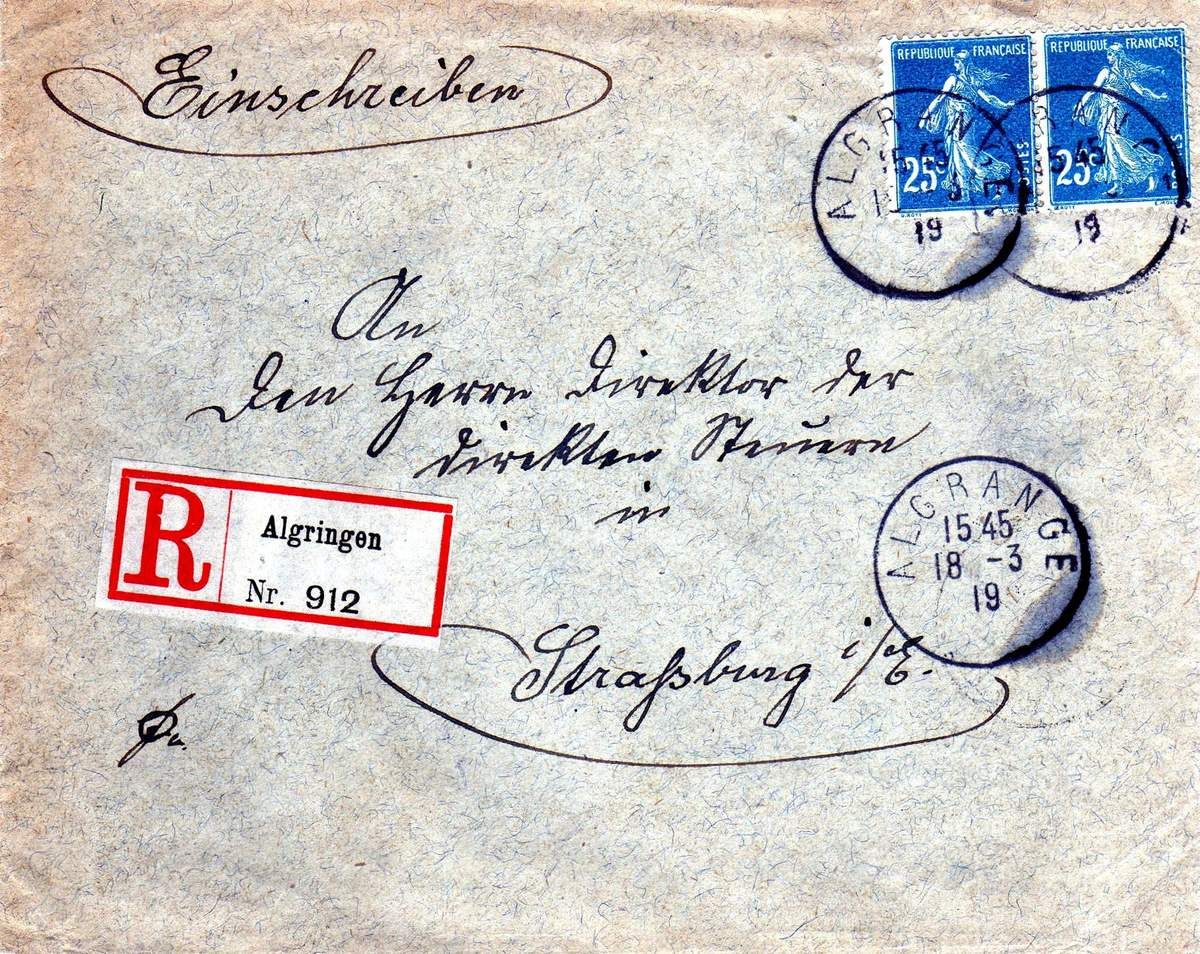 Einschreiben
REPUBLIQUE FRANÇAISE
25c
POSTES
REPUBLIQUE FRANÇAISE
25c
ALGRANGE
15 45
19
ALGRANGE
15 45
19
An
den Herrn Direktor der
direkten Steuern
in
Straßburg i/E.
R
Algringen
Nr. 912
ALGRANGE
15 45
18 -3
19